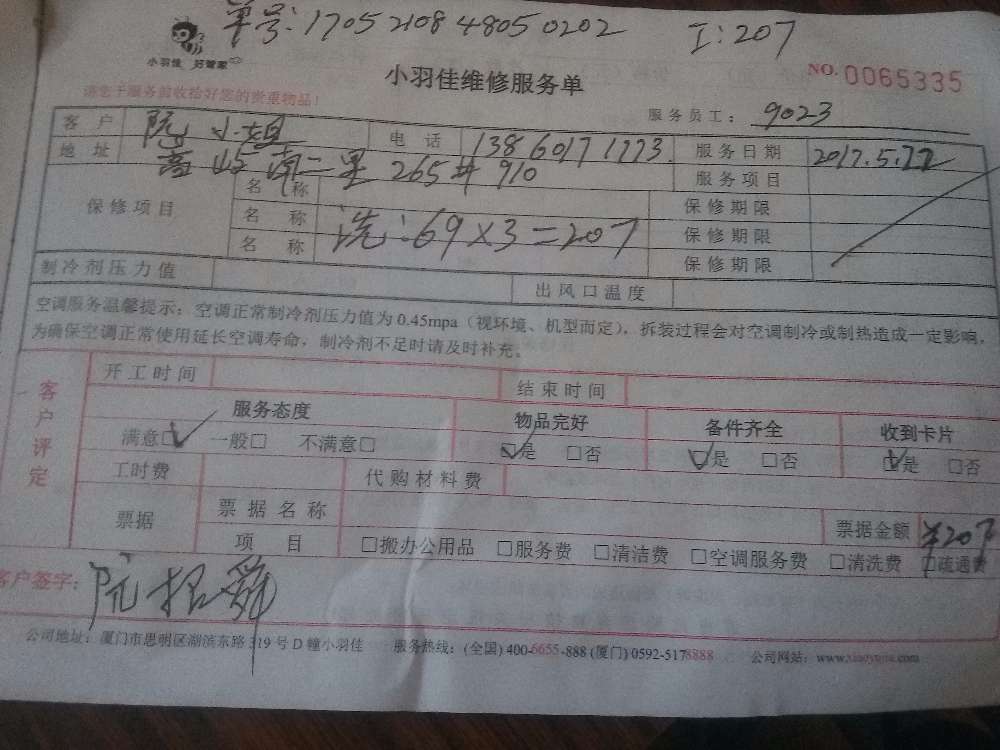 单号:170521084805 0202 I:207
小羽佳 好管家
小羽佳维修服务单
NO. 0065335
请您于服务前收拾好您的贵重物品!
服务员工: 9023
客户 阮小姐 电话 13860171773 服务日期 2017.5.22
地址 高崎南二里265#910 服务项目
保修项目 名称 保修期限
名称 洗:69×3=207 保修期限
名称 保修期限
制冷剂压力值 出风口温度
空调服务温馨提示:空调正常制冷剂压力值为0.45mpa(视环境、机型而定),拆装过程会对空调制冷或制热造成一定影响,
为确保空调正常使用延长空调寿命,制冷剂不足时请及时补充。
客户评定
开工时间 结束时间
服务态度 物品完好 备件齐全 收到卡片
满意☑ 一般□ 不满意□ ☑是 □否 ☑是 □否 ☑是 □否
工时费 代购材料费
票据 票据名称 票据金额 ¥207
项目 □搬办公用品 □服务费 □清洁费 □空调服务费 □清洗费 □疏通费
客户签字: 阮招舜
公司地址:厦门市思明区湖滨东路319号D幢小羽佳 服务热线:(全国) 400-6655-888 (厦门) 0592-5178888 公司网站: